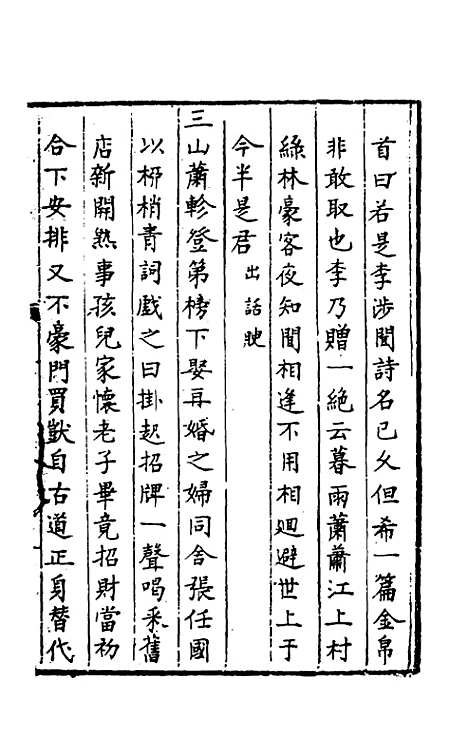 首曰若是李涉聞詩名已久但希一篇金帛
非敢取也李乃贈一絕云暮雨蕭蕭江上村
綠林豪客夜知聞相逢不用相迴避世上于
今半是君出話腴
三山蕭軫登第榜下娶再婚之婦同舍張任國
以柳梢青詞戲之曰掛起招牌一聲喝采舊
店新開熟事孩兒家懷老子畢竟招財當初
合下安排又不豪門買獃自古道正身替代